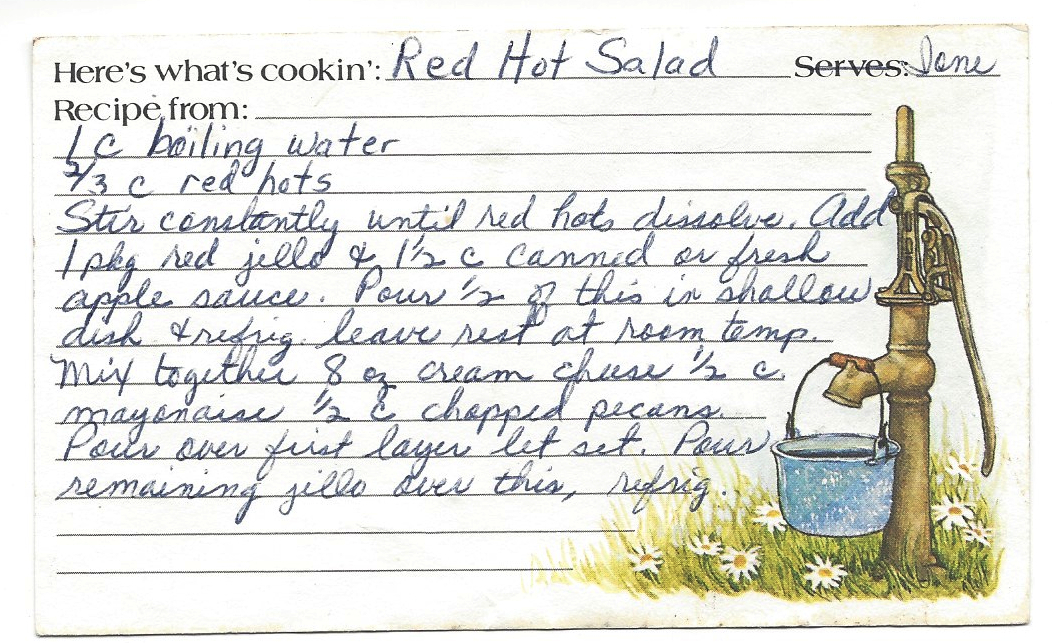 Here's what's cookin': Red Hot Salad Serves: Jane
Recipe from:
1 c boiling water
2/3 c red hots
Stir constantly until red hots dissolve. Add
1 pkg red jello & 1 1/2 c canned or fresh
apple sauce. Pour 1/2 of this in shallow
dish & refrig. leave rest at room temp.
Mix together 8 oz cream cheese 1/2 c.
mayonaise 1/2 c chopped pecans.
Pour over first layer let set. Pour
remaining jello over this, refrig.